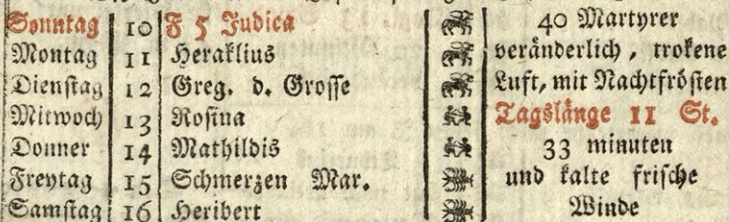 Sonntag 10 F 5 Judica 40 Martyrer
Montag 11 Heraklius veränderlich, trokene
Dienstag 12 Greg. d. Grosse Luft, mit Nachtfrösten
Mitwoch 13 Rosina Tagslänge 11 St.
Donner 14 Mathildis 33 minuten
Freytag 15 Schmerzen Mar. und kalte frische
Samstag 16 Heribert Winde